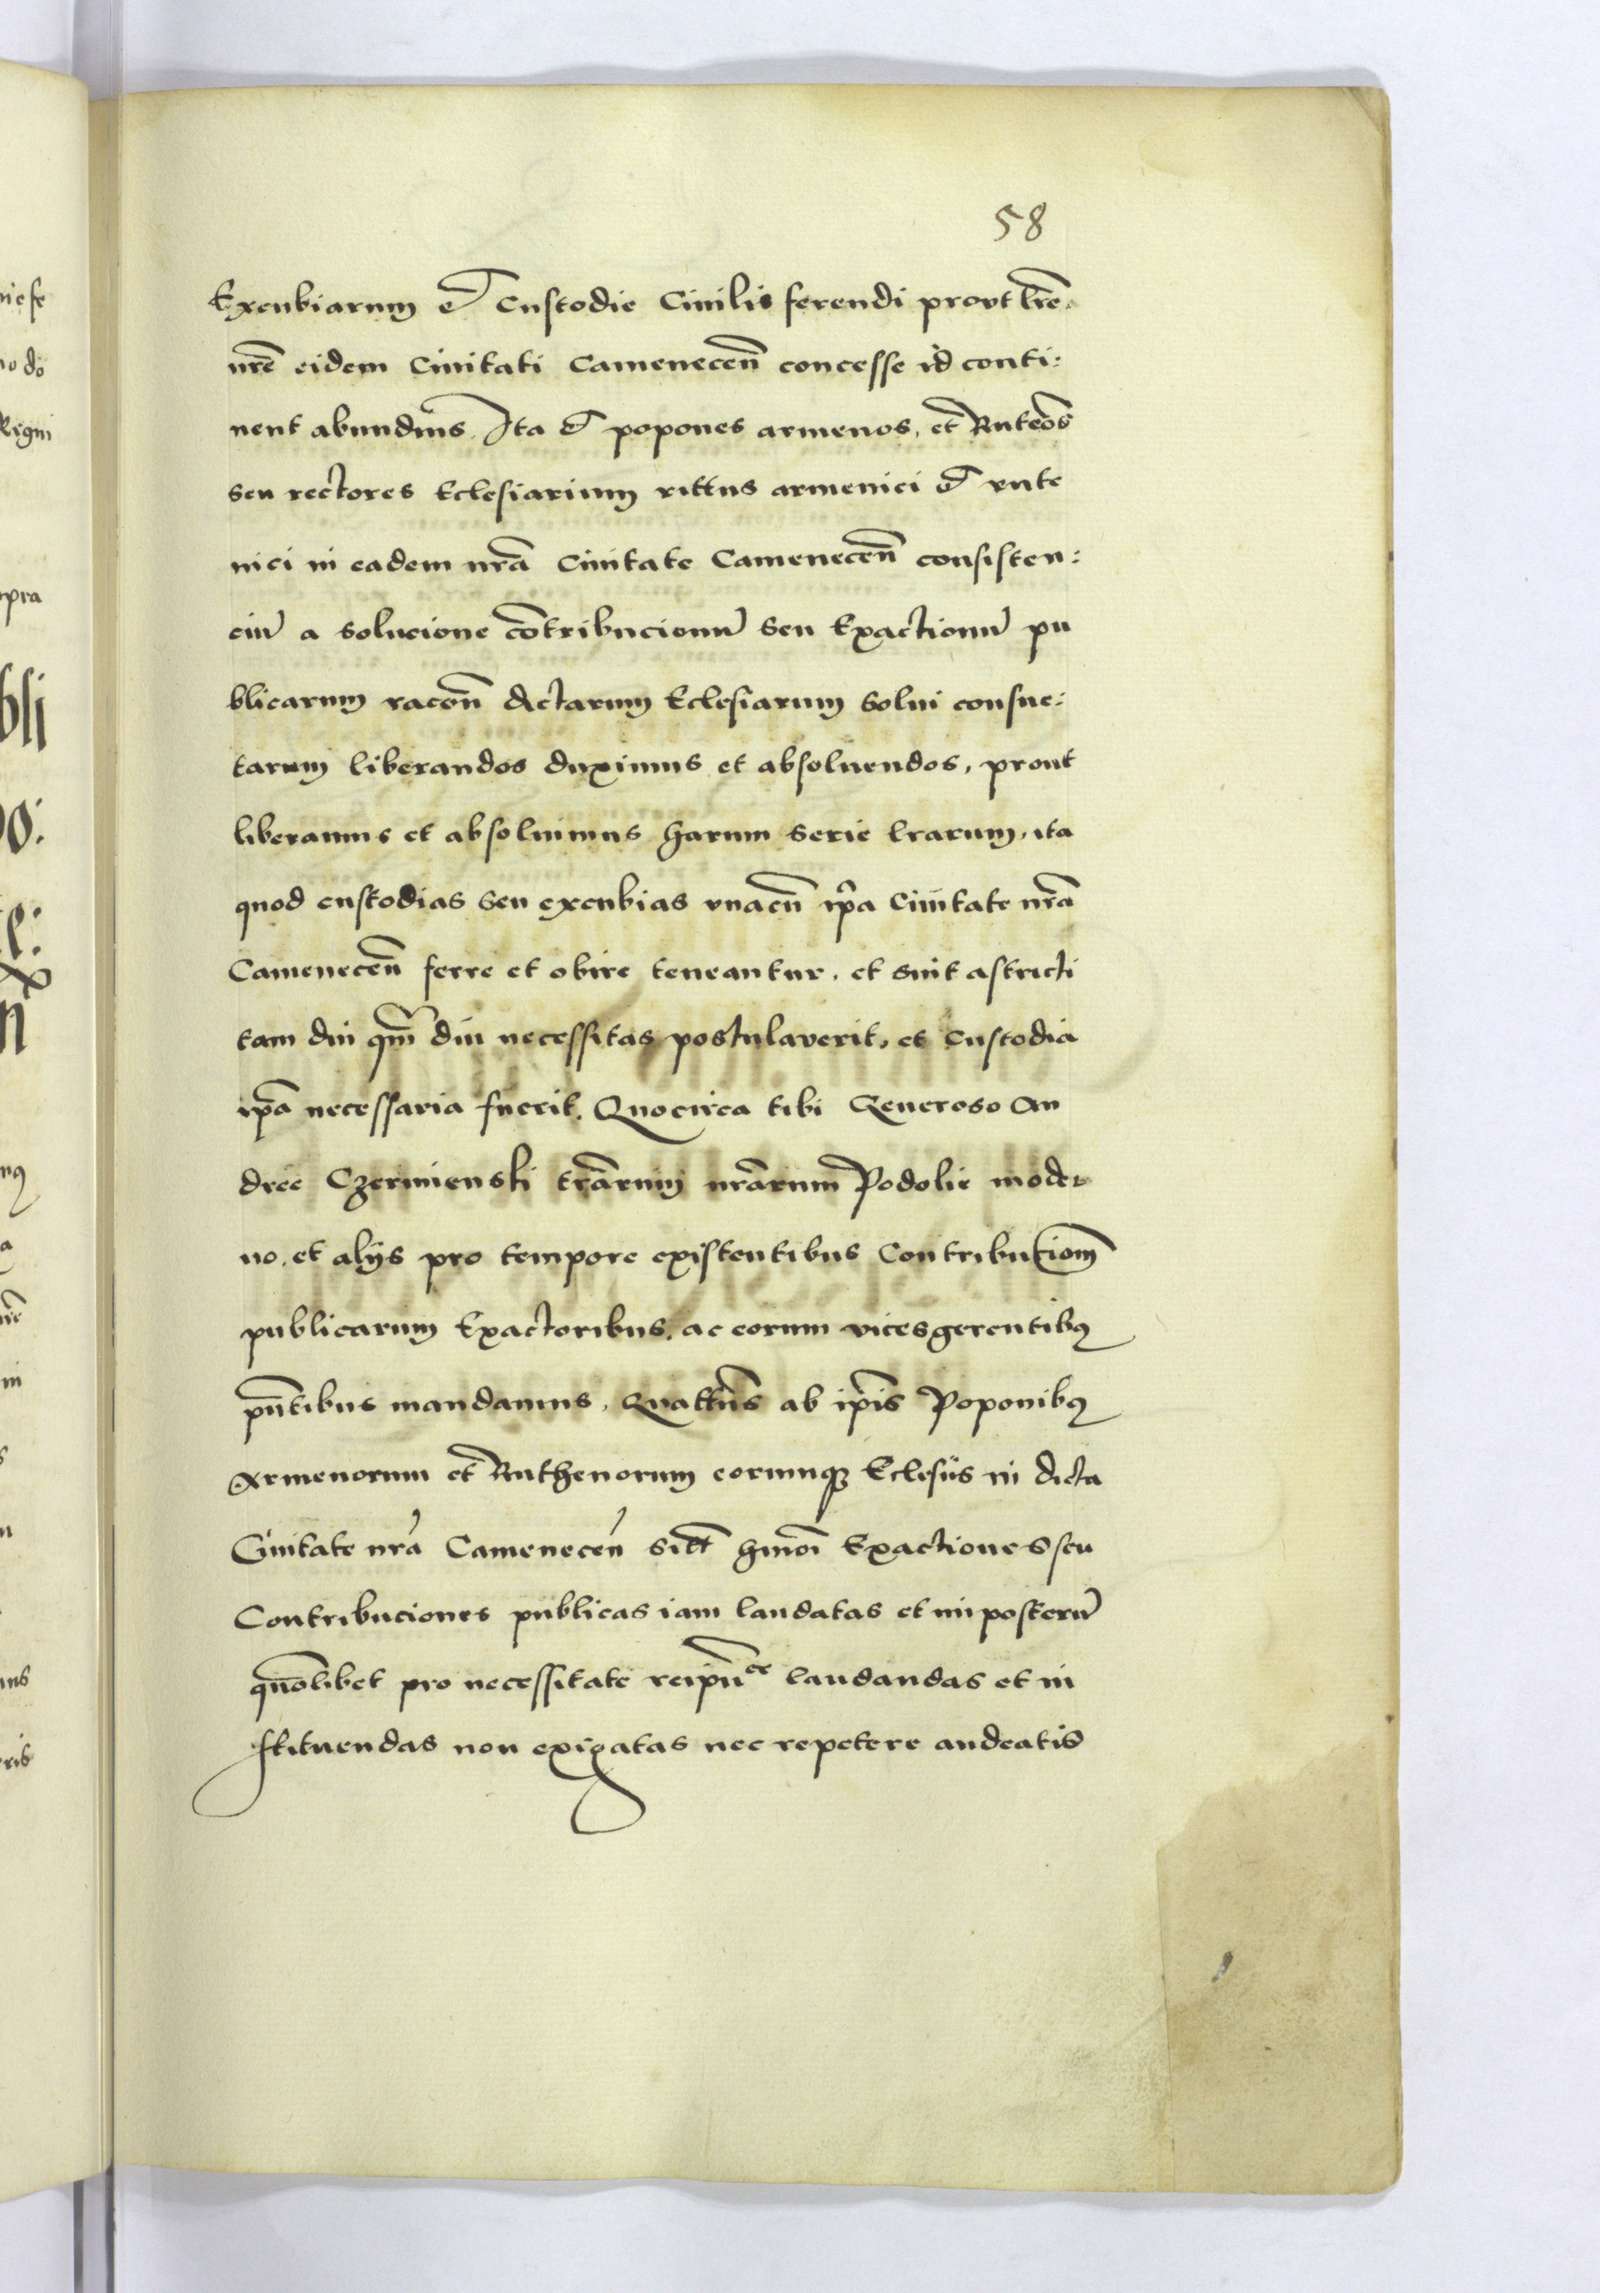 58
Excubiarum et Custodie Ciuilis ferendi prout lr̄e
nr̄e eidem Ciuitati Camenecen̄ concesse id conti:
nent abundius. Ita et popones armenos, et Ruteōs
seu rectores Eclesiarium rittus armenici et rute
nici in eadem nr̄a Ciuitate Camenecen̄ consisten:
ciū a solucione cōntribucionū seu Exactionū pu
blicarum racōn dictarum Eclesiarum solui consue:
tarum liberandos duximus et absoluendos, prout
liberamus et absoluimus harum serie lrarum, ita
quod custodias seu excubias vnacū ip̄a Ciuitate nr̄a
Camenecen̄ ferre et obire teneantur, et sint astricti
tam diu qm̄ diu necessitas postulaverit, et Custodia
ip̄a necessaria fuerit. Quocirca tibi Generoso An
dree Czerminski trāruum nr̄arum Podolie moder
no, et alijs pro tempore existentibus Contributiom̄
publicarum Exactoribus, ac eorum vicesgerentibꝰ
pn̄tibus mandamus, Quatt̄ns ab ip̄is Poponibꝰ
Armenorum et Ruthenorum eorumqꝫ Eclesiis in dicta
Ciuitate nr̄a Camenecen̄ sict̄ hmōi Exactiones seu
Contribuciones publicas iam laudatas et in posterū
quōlibet pro necessitate reipu͞ce laudandas et in
stituendas non exigatas nec repetere audeatis
nie se
no do
Rigni
upra
bli